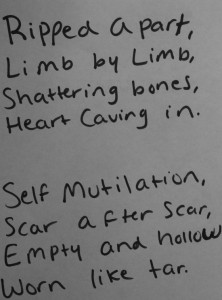 Ripped apart,
Limb by Limb,
Shattering bones,
Heart Caving in.
Self Mutilation,
Scar after Scar,
Empty and hollow
Worn like tar.